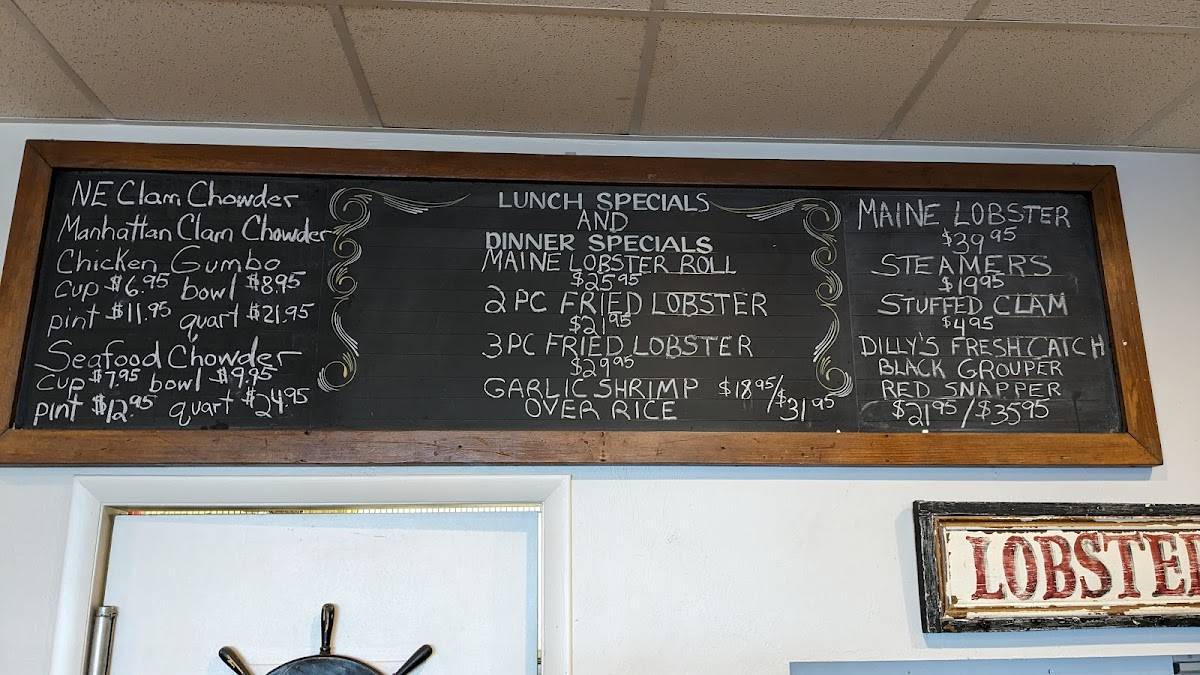 NE Clam Chowder
Manhattan Clam Chowder
Chicken Gumbo
cup $6.95 bowl $8.95
pint $11.95 quart $21.95
Seafood Chowder
cup $7.95 bowl $9.95
pint $12.95 quart $24.95
LUNCH SPECIALS
AND
DINNER SPECIALS
MAINE LOBSTER ROLL
$25.95
2 PC FRIED LOBSTER
$21.95
3 PC FRIED LOBSTER
$29.95
GARLIC SHRIMP $18.95/$31.95
OVER RICE
MAINE LOBSTER
$39.95
STEAMERS
$19.95
STUFFED CLAM
$4.95
DILLY'S FRESH CATCH
BLACK GROUPER
RED SNAPPER
$21.95/$35.95
LOBSTE